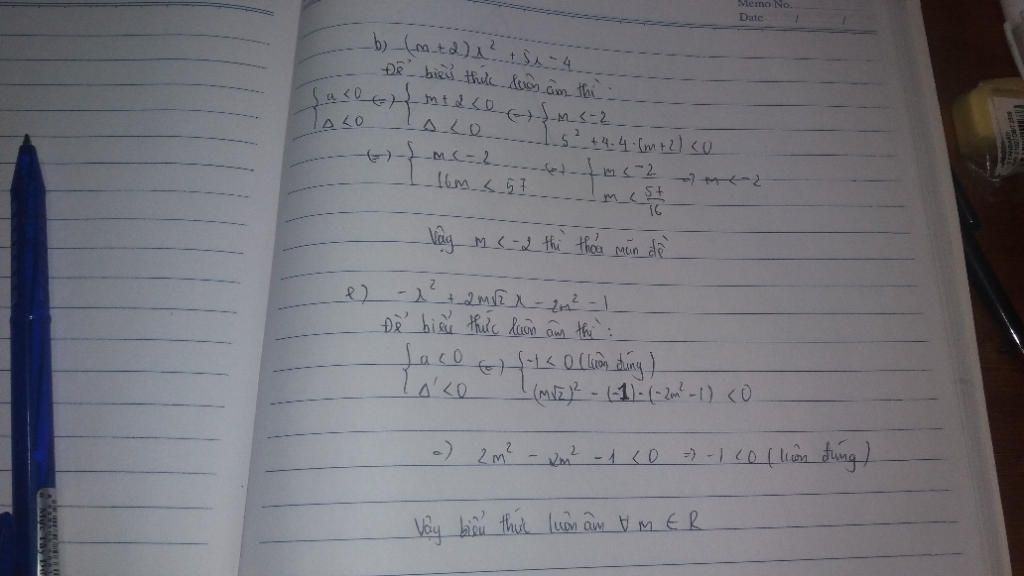 Memo No.
Date / /
b) (m+2)x² + 5x - 4
Để biểu thức luôn âm thì:
{ a < 0 (=) { m+2 < 0 (=) { m < -2
{ Δ < 0 { Δ < 0 { 5² + 4.4.(m+2) < 0
(=) { m < -2 (=) { m < -2 => m < -2
{ 16m < 57 { m < 57/16
Vậy m < -2 thì thỏa mãn đề
e) -x² + 2m√2 x - 2m² - 1
Để biểu thức luôn âm thì:
{ a < 0 (=) { -1 < 0 (luôn đúng)
{ Δ' < 0 { (m√2)² - (-1).(-2m² - 1) < 0
=) 2m² - 2m² - 1 < 0 => -1 < 0 (luôn đúng)
Vậy biểu thức luôn âm ∀ m ∈ R